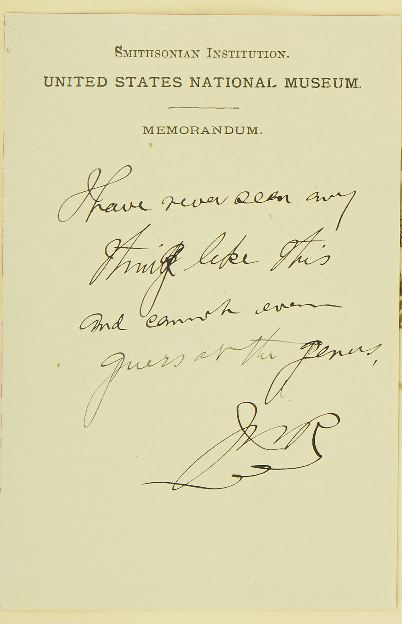 SMITHSONIAN INSTITUTION.
UNITED STATES NATIONAL MUSEUM.
MEMORANDUM.
I have never seen any
thing like this
and cannot even
guess at the genus,
JNR